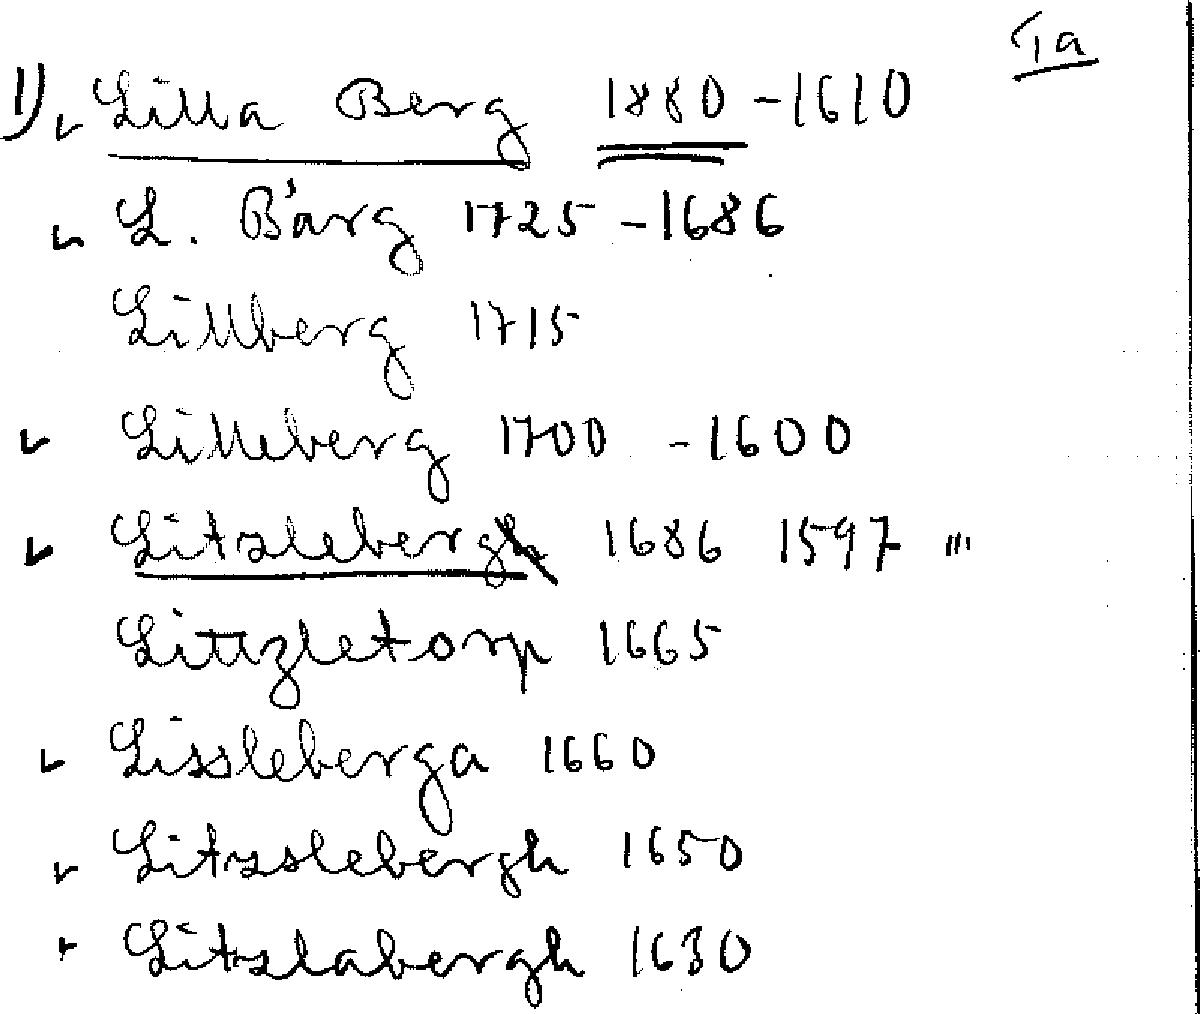 Ta
1) Lilla Berg 1880 - 1610
L. Bärg 1725 - 1686
Lillberg 1715
Lilleberg 1700 - 1600
Litzleberg 1686 1597 "'
Littzletorp 1665
Lissleberga 1660
Litzslebergh 1650
Litzlabergh 1630